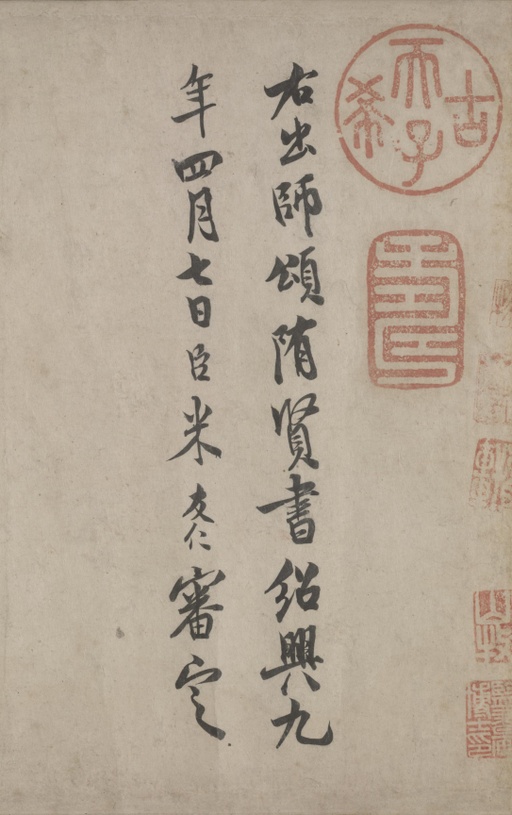 右出師頌隋賢書紹興九
年四月七日臣米友仁審定
古希天子